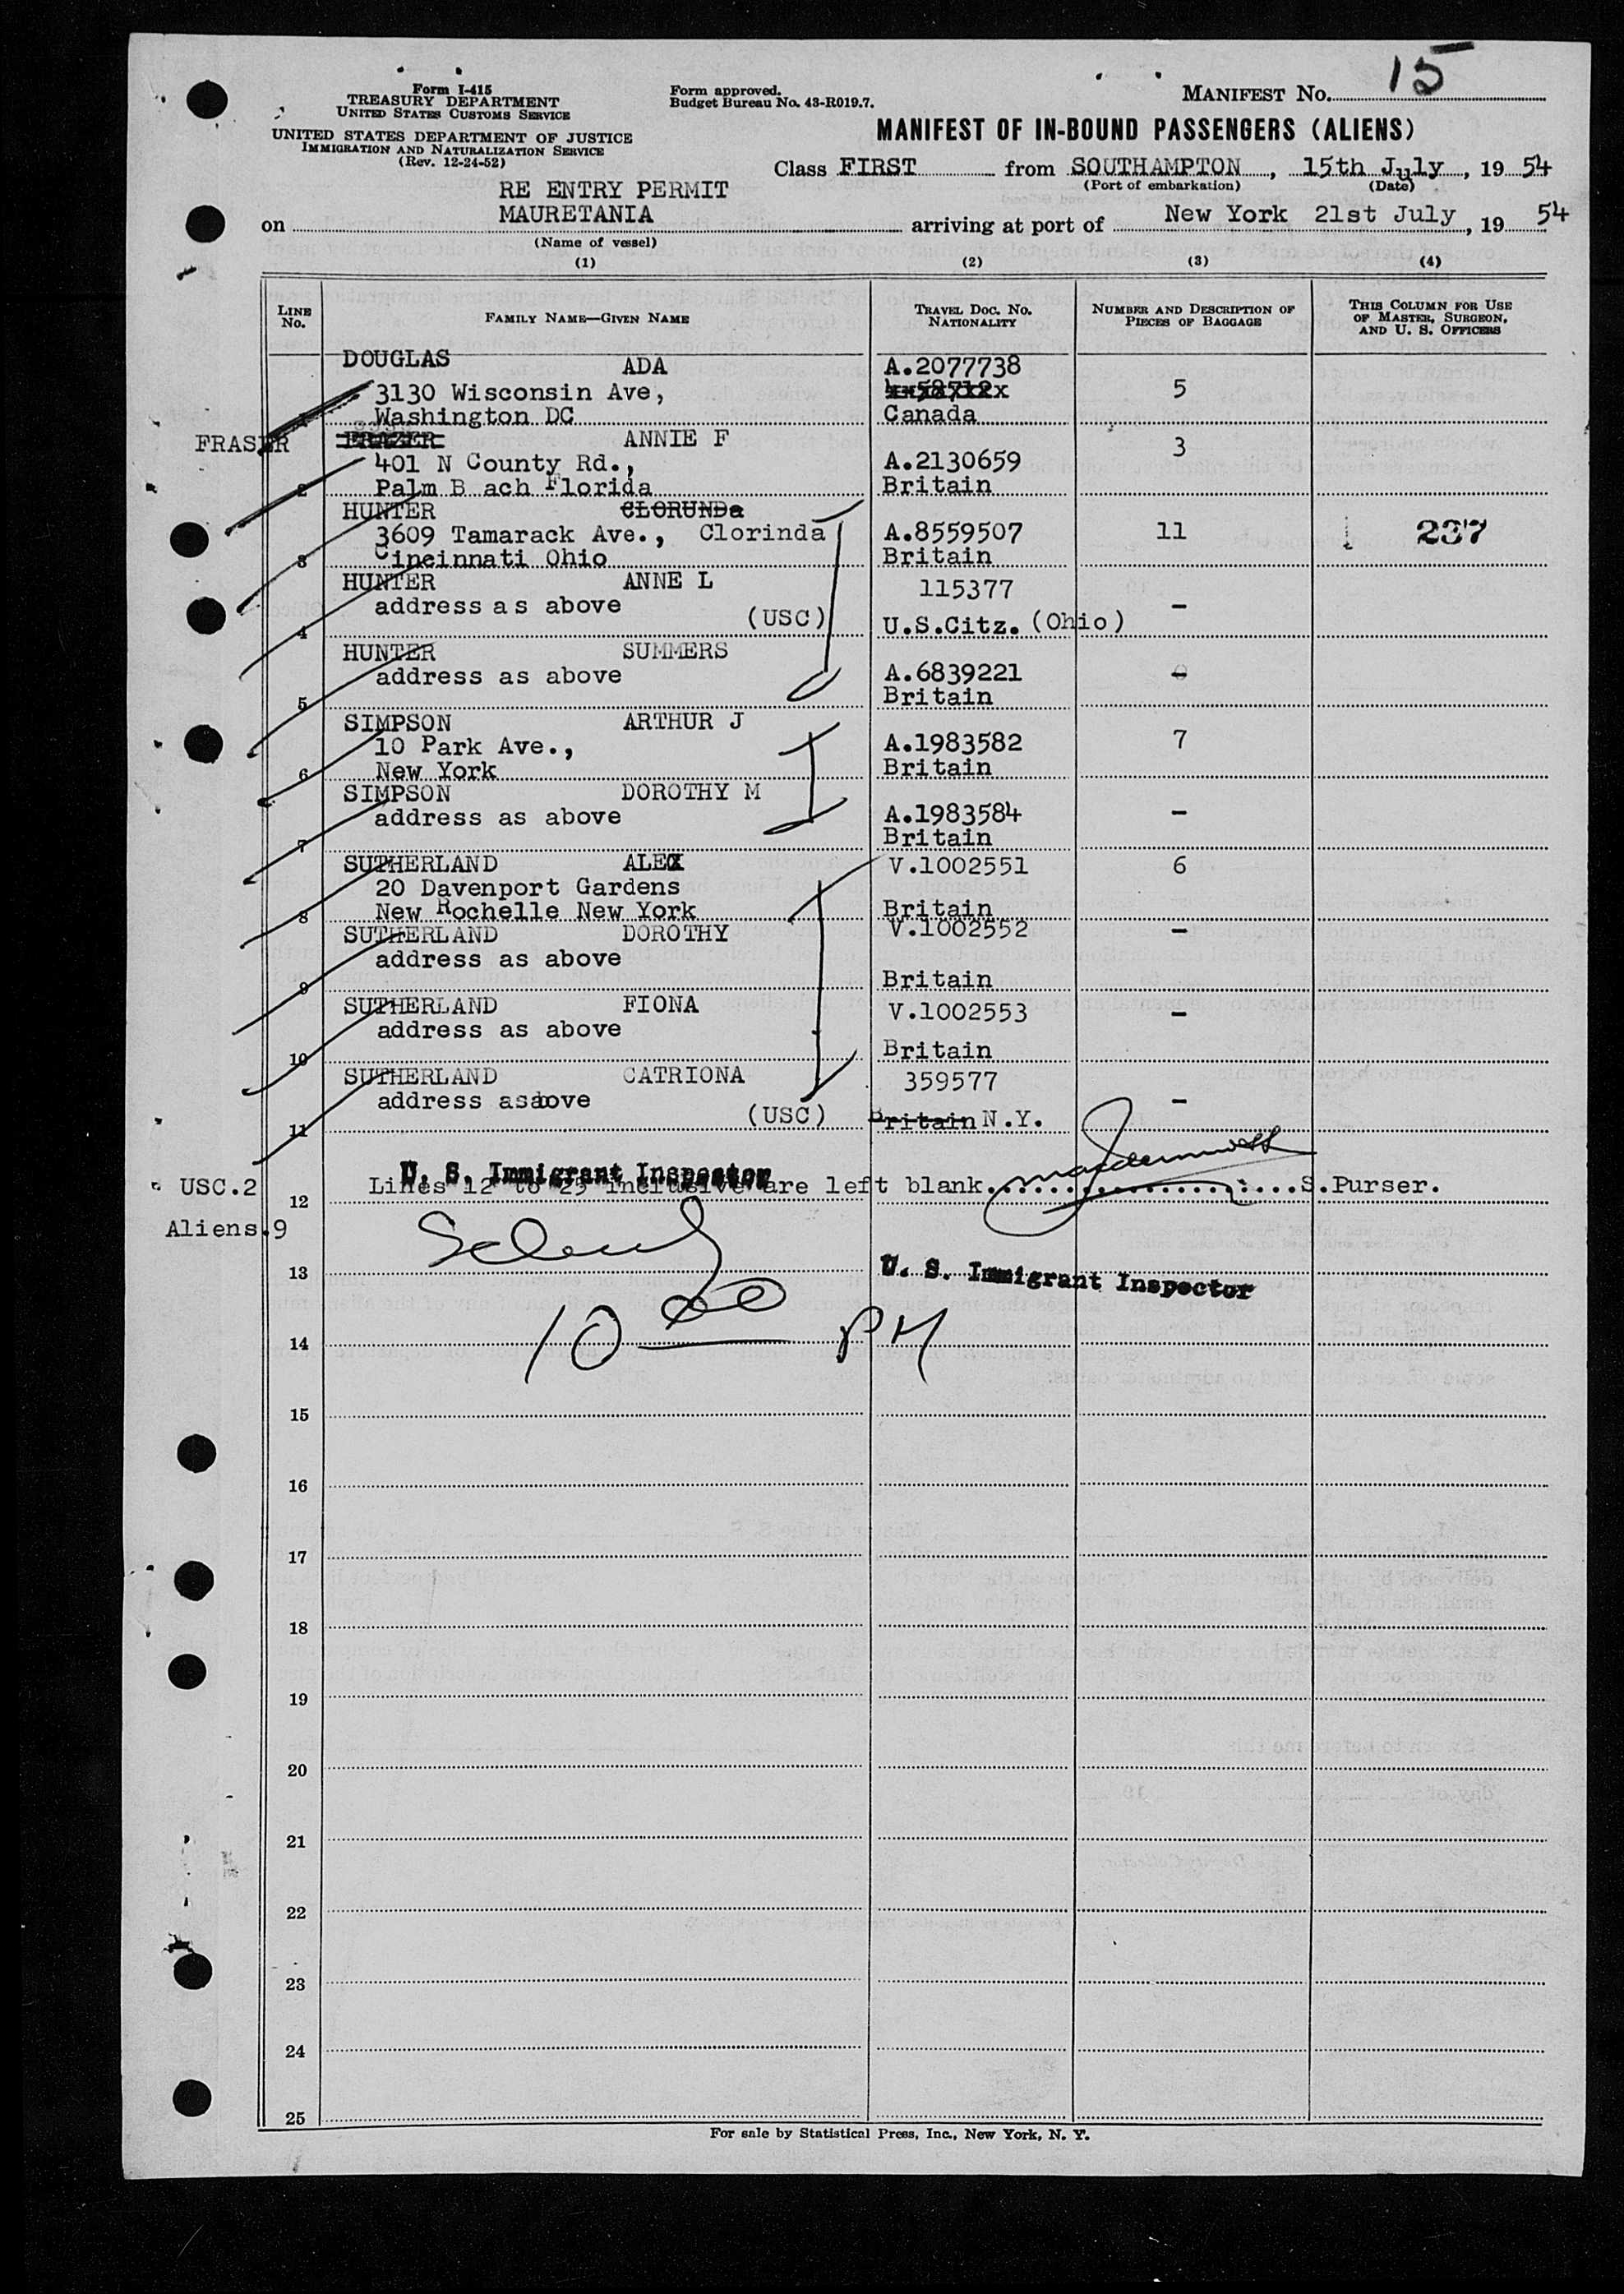 15
MANIFEST NO.
Form I-415
TREASURY DEPARTMENT
UNITED STATES CUSTOMS SERVICE
UNITED STATES DEPARTMENT OF JUSTICE
IMMIGRATION AND NATURALIZATION SERVICE
(Rev. 12-24-52)
Form approved.
Budget Bureau No. 43-R019.7.
MANIFEST OF IN-BOUND PASSENGERS (ALIENS)
Class FIRST from SOUTHAMPTON, 15th July, 19 54
(Port of embarkation) (Date)
RE ENTRY PERMIT
on MAURETANIA arriving at port of New York 21st July, 19 54
(Name of vessel)
(1) (2) (3) (4)
LINE NO. FAMILY NAME—GIVEN NAME TRAVEL DOC. NO. NATIONALITY NUMBER AND DESCRIPTION OF PIECES OF BAGGAGE THIS COLUMN FOR USE OF MASTER, SURGEON, AND U. S. OFFICERS
DOUGLAS ADA A.2077738
3130 Wisconsin Ave, 5
Washington DC Canada
FRASER FRAZER ANNIE F 3
401 N County Rd., A.2130659
2 Palm B ach Florida Britain
HUNTER CLORUNDa
3609 Tamarack Ave., Clorinda A.8559507 11 237
3 Cincinnati Ohio Britain
HUNTER ANNE L 115377
address as above -
4 (USC) U.S.Citz. (Ohio)
HUNTER SUMMERS
address as above A.6839221 -
5 Britain
SIMPSON ARTHUR J
10 Park Ave., A.1983582 7
6 New York Britain
SIMPSON DOROTHY M
address as above A.1983584 -
7 Britain
SUTHERLAND ALEX V.1002551 6
20 Davenport Gardens
8 New Rochelle New York Britain
SUTHERLAND DOROTHY V.1002552 -
address as above
9 Britain
SUTHERLAND FIONA V.1002553 -
address as above
10 Britain
SUTHERLAND CATRIONA 359577
address as above -
11 (USC) Britain N.Y.
U. S. Immigrant Inspector
USC.2 12 Lines 12 to 25 inclusive are left blank. S.Purser.
Aliens.9
13 U. S. Immigrant Inspector
14 10 00 PM
15
16
17
18
19
20
21
22
23
24
25
For sale by Statistical Press, Inc., New York, N. Y.